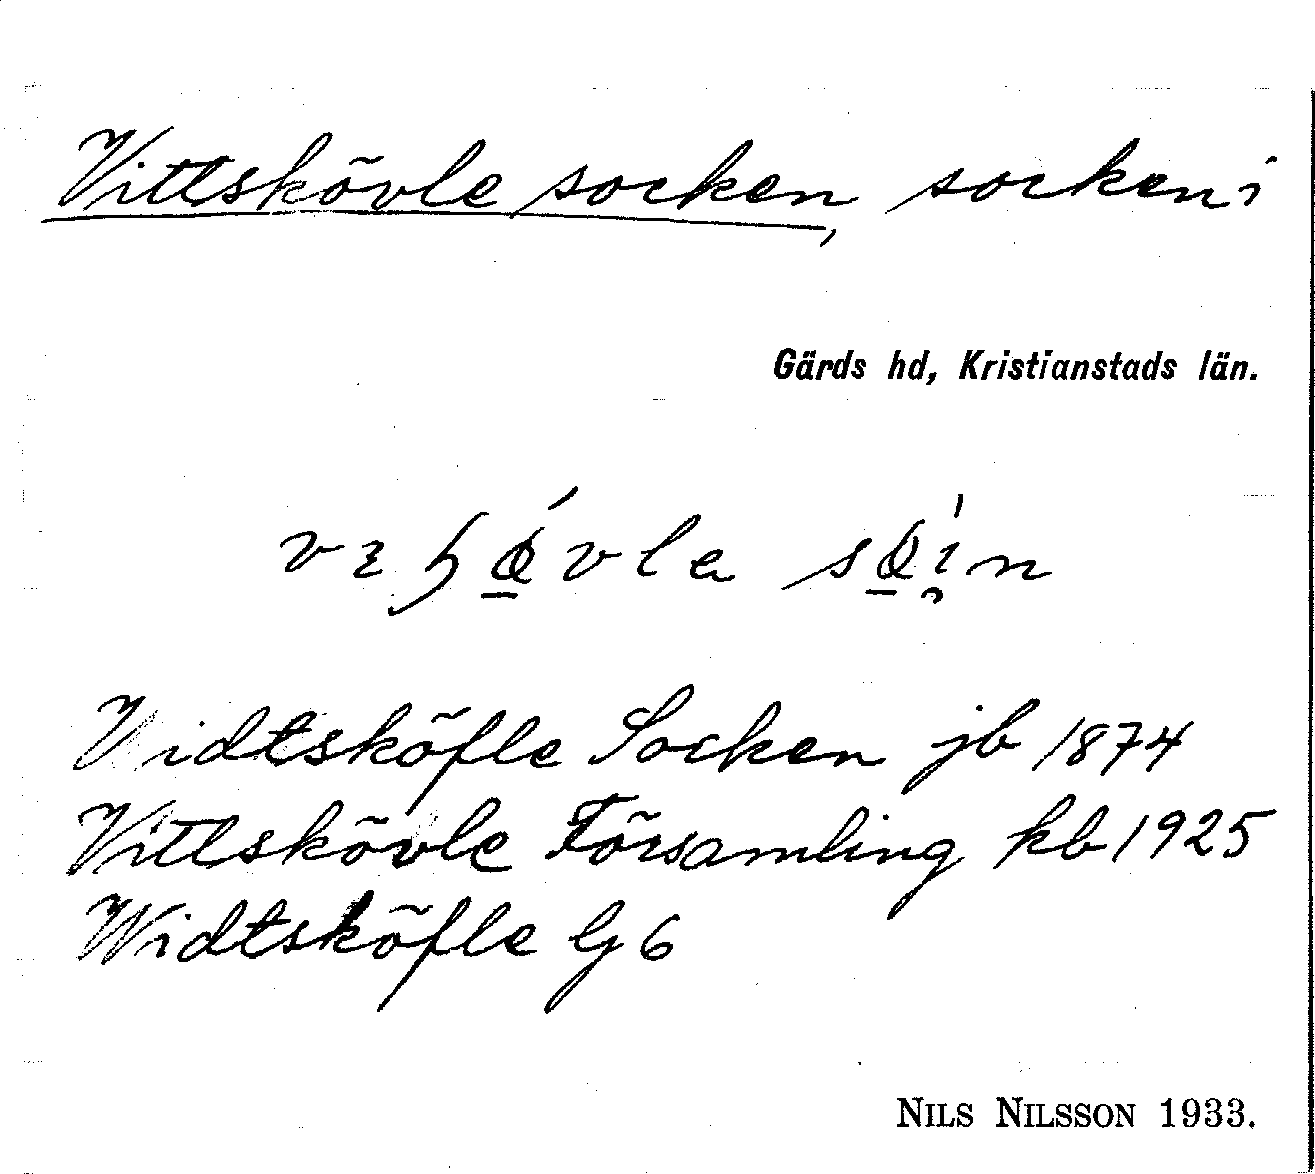 Vittskövle socken, socken i
Gärds hd, Kristianstads län.
Vidtsköfle Socken jb 1874
Vittskövle Församling kb 1925
Widtsköfle G 6
NILS NILSSON 1933.